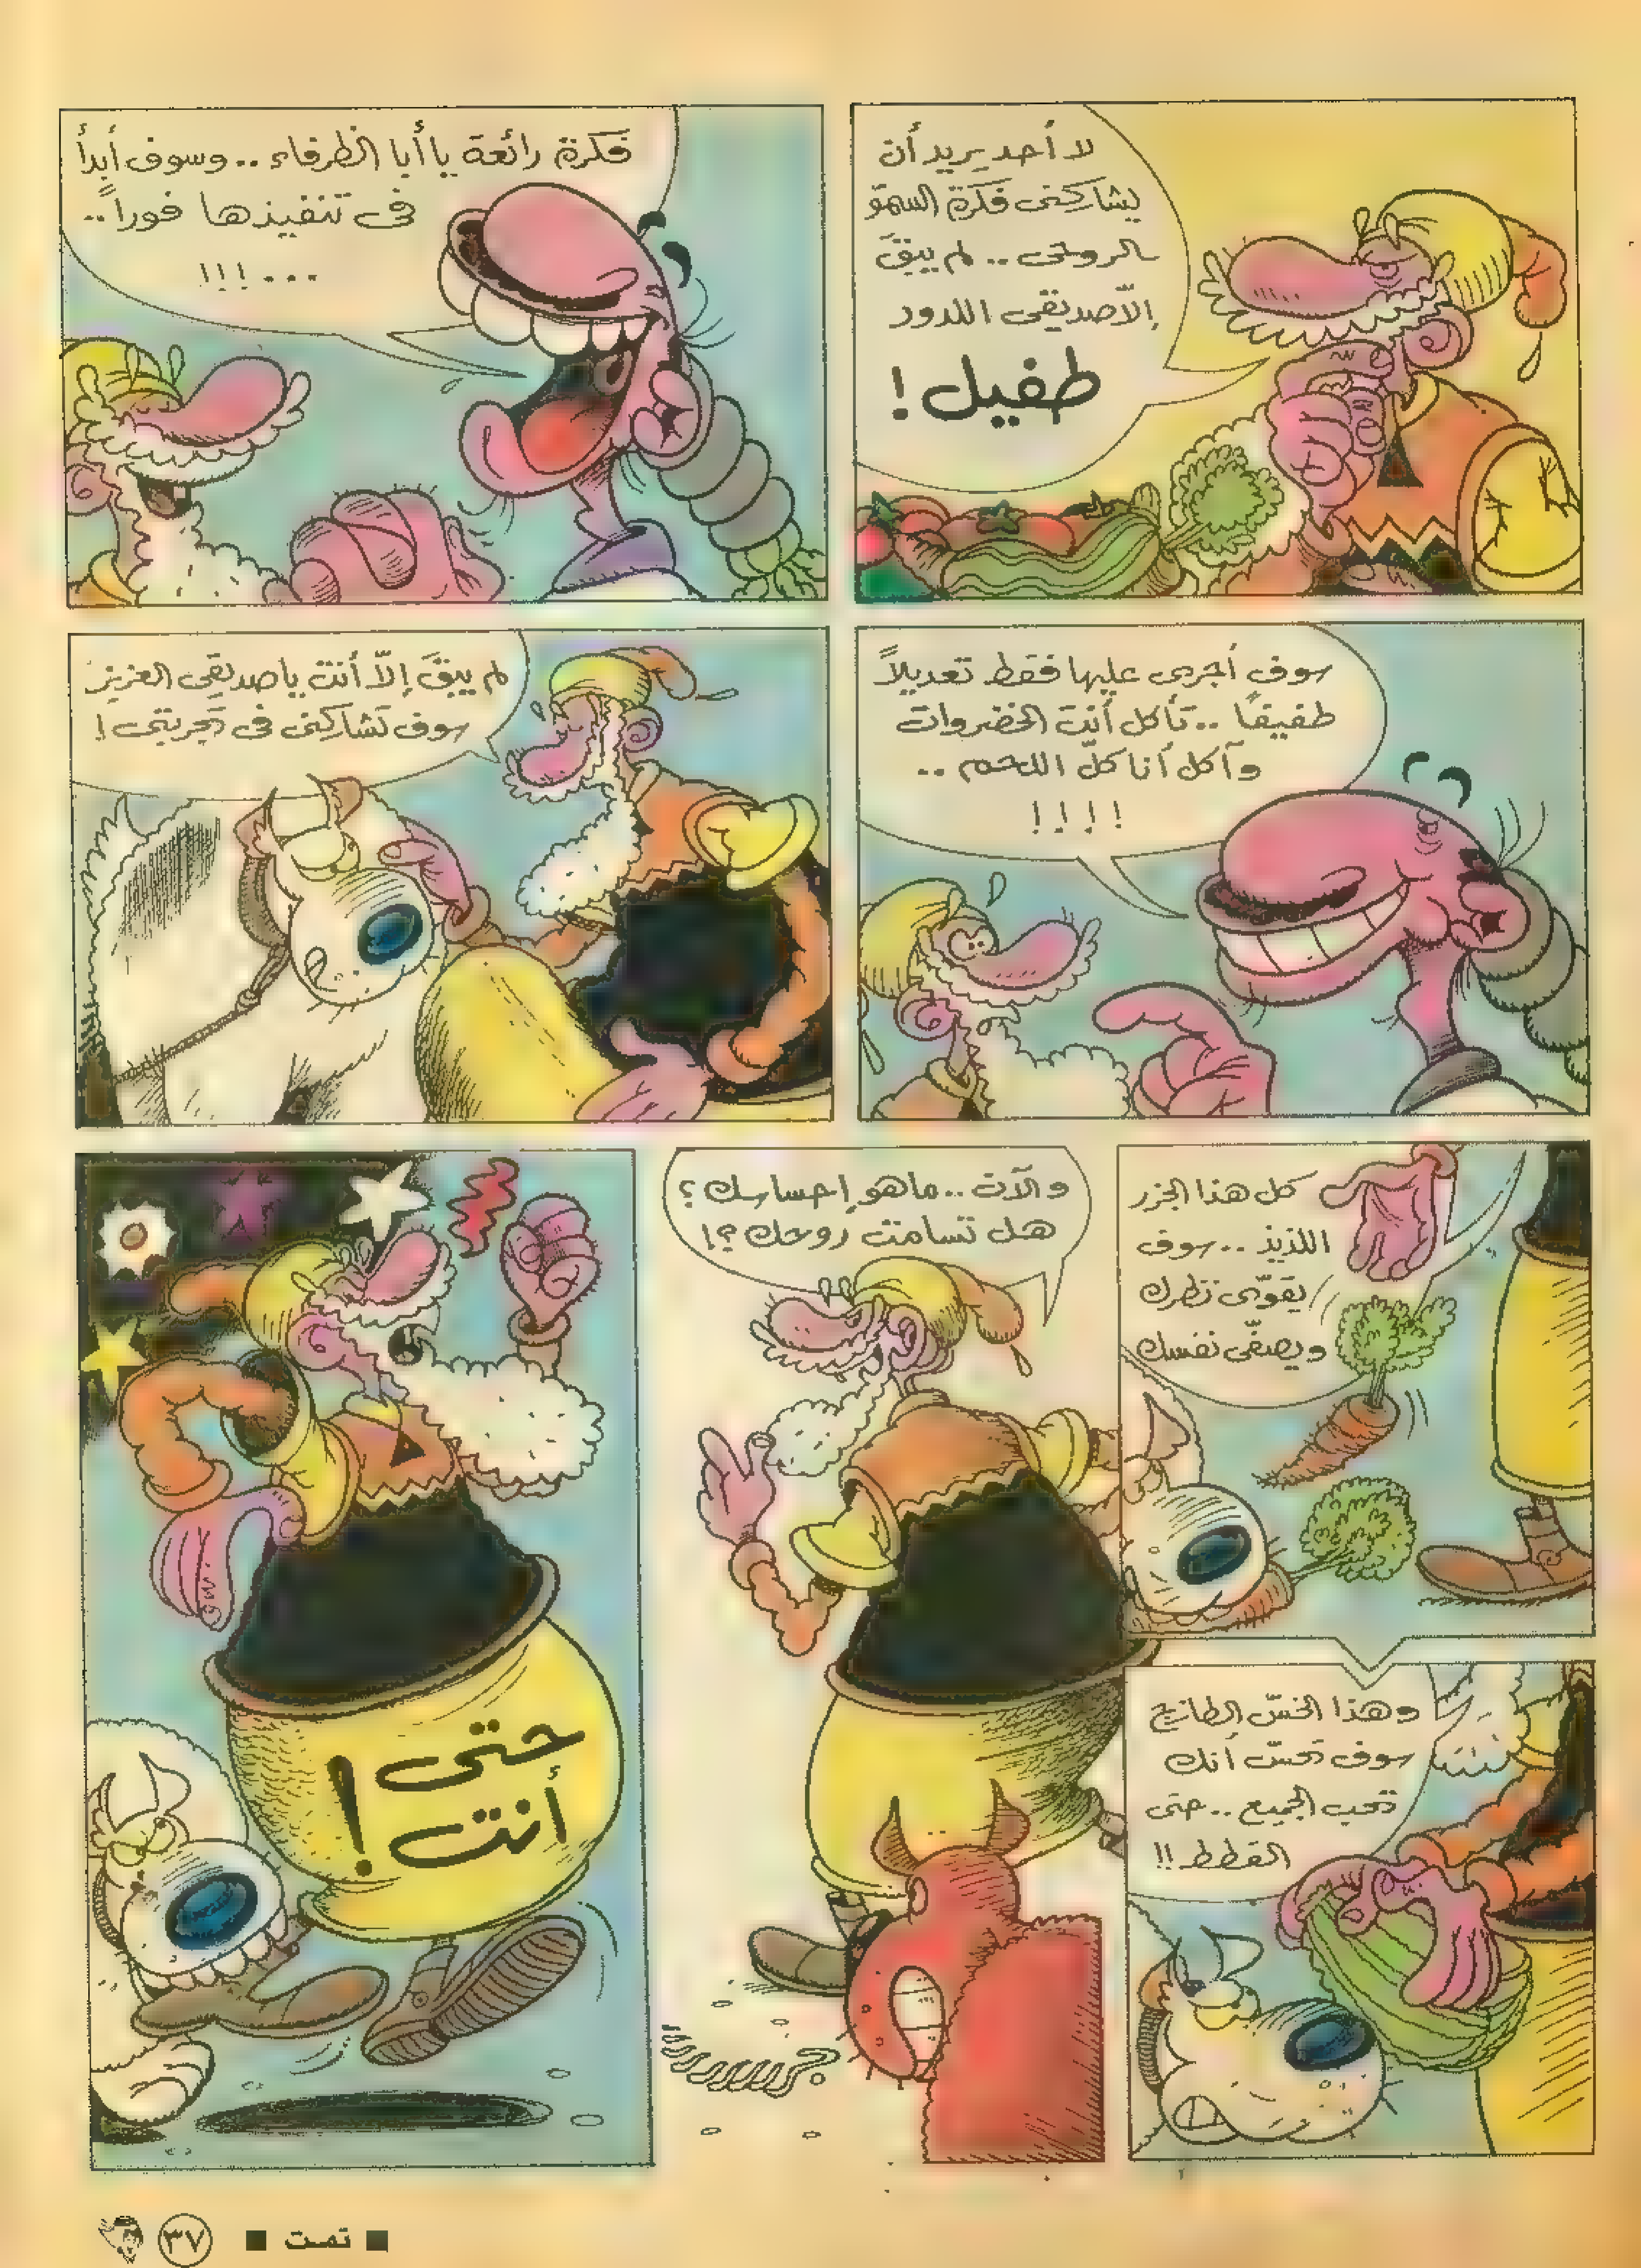 لا أحد يريد أن
يشاركنى فكرة السموّ
الروحى .. لم يبقَ
إلّا صديقى اللدود
طفيل !
فكرة رائعة يا أبا الظرفاء .. وسوف أبدأ
فى تنفيذها فوراً ..
... !!!
سوف أجرى عليها فقط تعديلاً
طفيفًا .. تأكل أنت الخضروات
وآكل أنا كلّ اللحم ..
!!!!
لم يبقَ إلّا أنت يا صديقى العزيز
سوف تشاركنى فى تجربتى !
كل هذا الجزر
اللذيذ .. سوف
يقوّى نظرك
ويصفّى نفسك
وهذا الخسّ الطازج
سوف تحسّ أنك
تحب الجميع .. حتى
القطط !!
والآن .. ماهو إحساسك ؟
هل تسامت روحك ؟!
حتى
أنت !
■ تمت ■ ٣٧